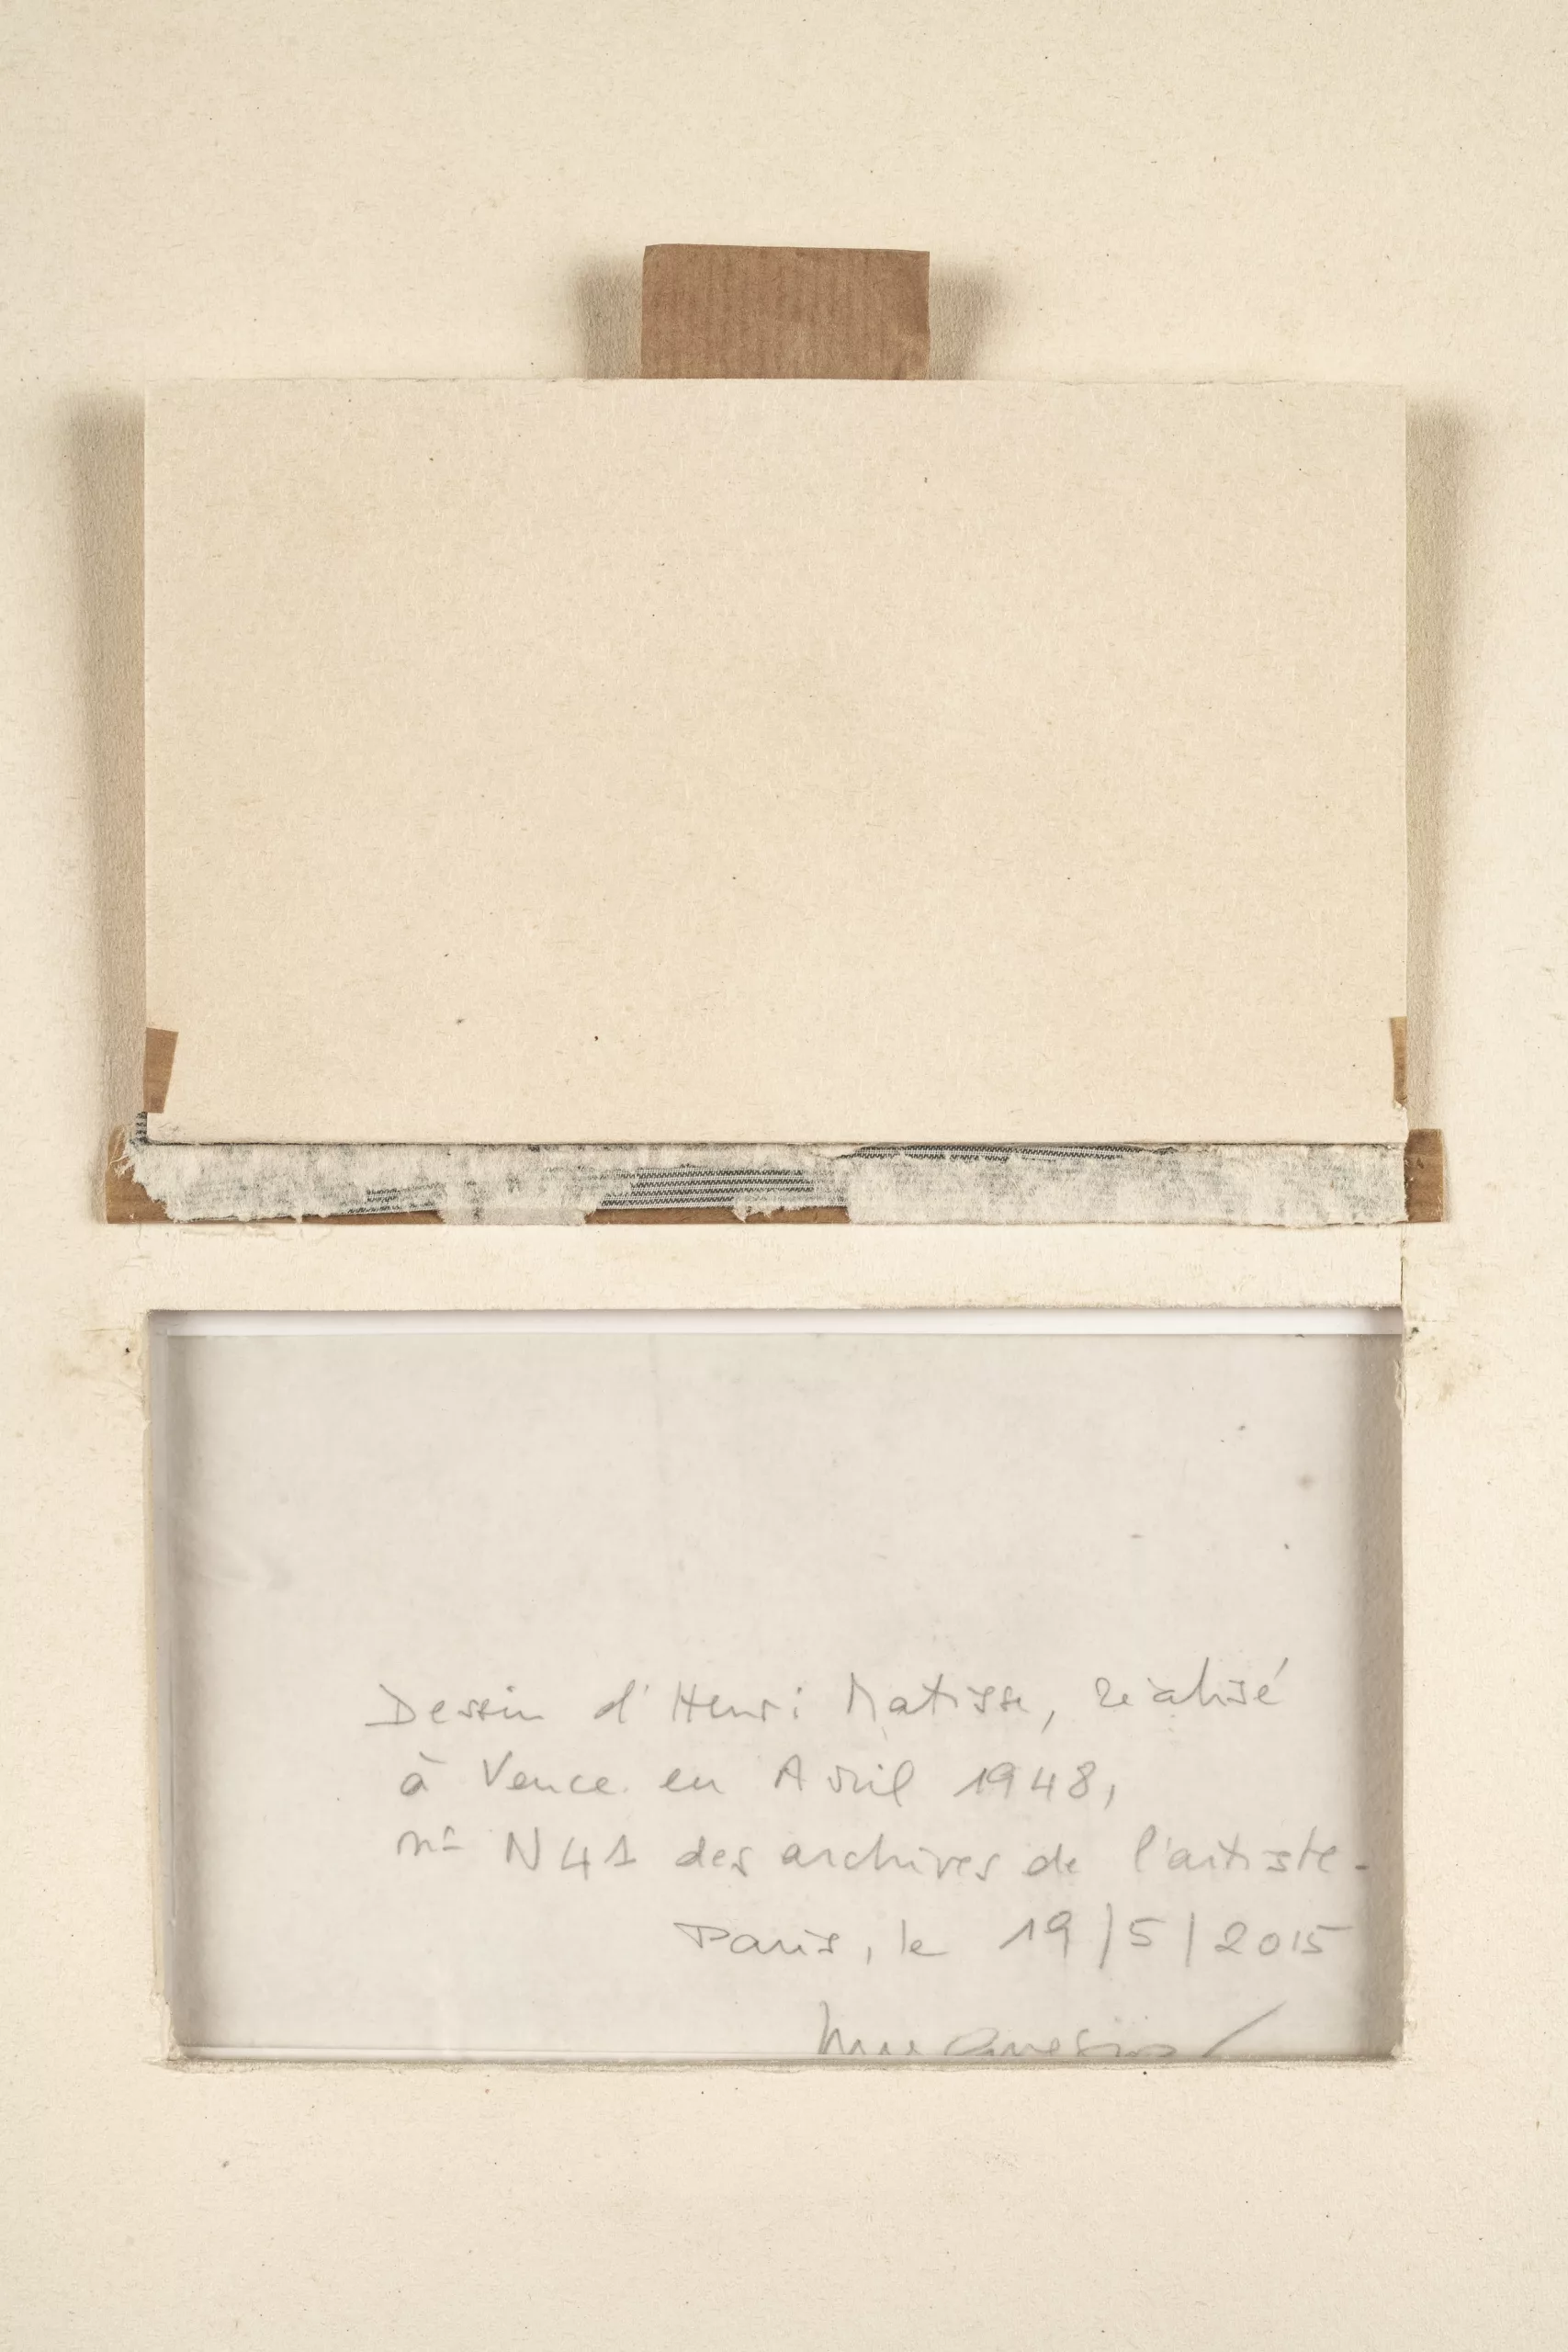 Dessin d'Henri Matisse, réalisé
à Vence en Avril 1948,
n° N41 des archives de l'artiste.
Paris, le 19/5/2015